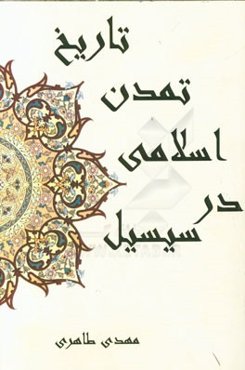 تاریخ
تمدن
اسلامی
در
سیسیل
مهدی طاهری